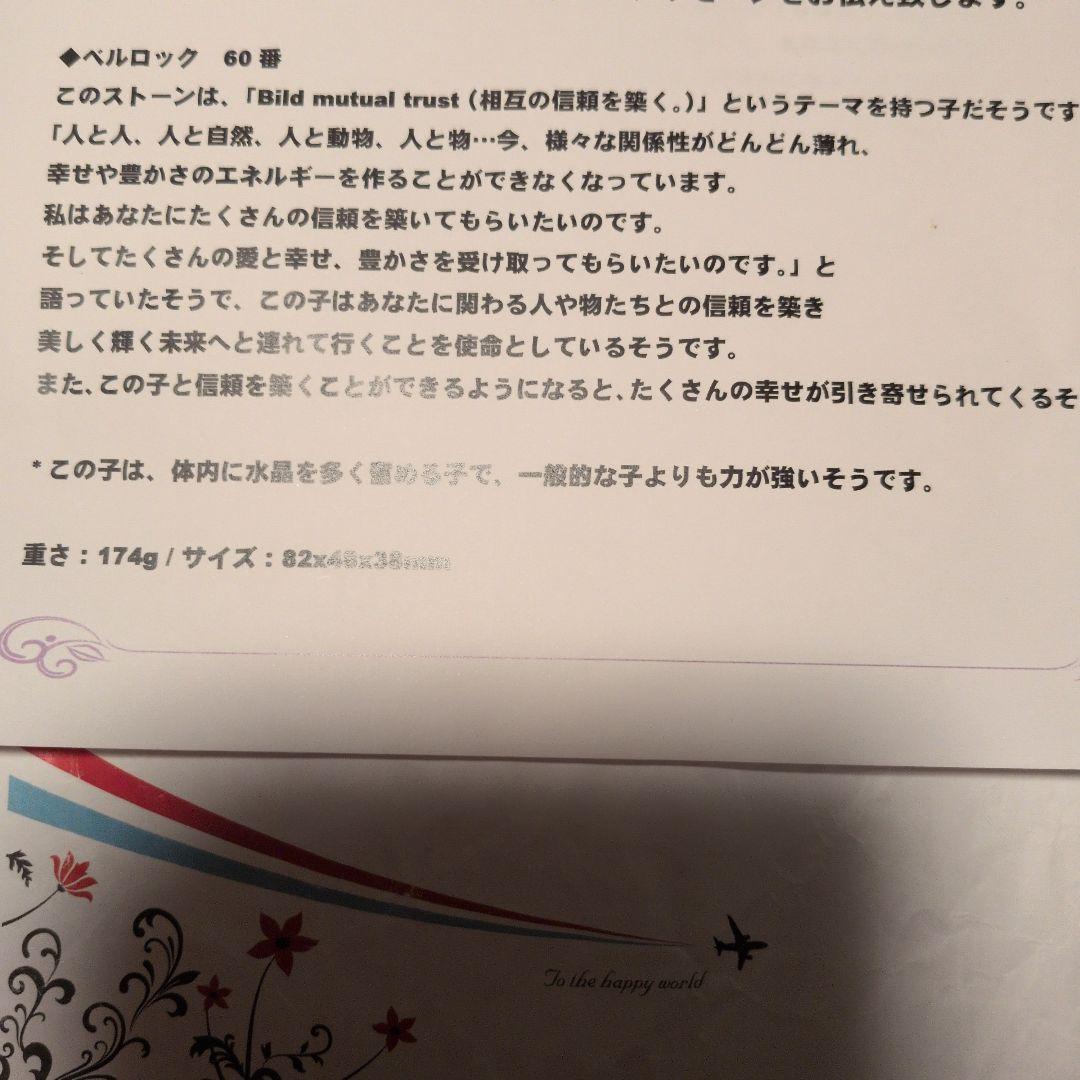 をお伝え致します。
◆ベルロック 60番
このストーンは、「Bild mutual trust（相互の信頼を築く。）」というテーマを持つ子だそうです
「人と人、人と自然、人と動物、人と物…今、様々な関係性がどんどん薄れ、
幸せや豊かさのエネルギーを作ることができなくなっています。
私はあなたにたくさんの信頼を築いてもらいたいのです。
そしてたくさんの愛と幸せ、豊かさを受け取ってもらいたいのです。」と
語っていたそうで、この子はあなたに関わる人や物たちとの信頼を築き
美しく輝く未来へと連れて行くことを使命としているそうです。
また、この子と信頼を築くことができるようになると、たくさんの幸せが引き寄せられてくるそ
*この子は、体内に水晶を多く留める子で、一般的な子よりも力が強いそうです。
重さ：174g / サイズ：82x48x38mm
To the happy world